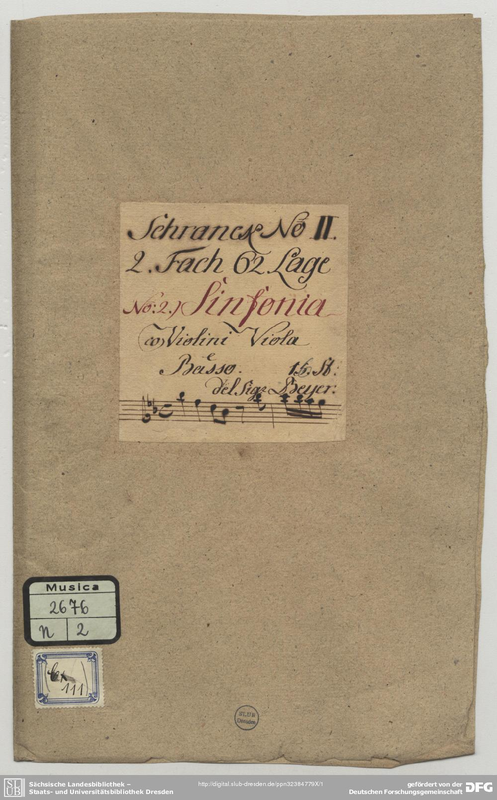 Schranck No II.
2. Fach 62. Lage
No: 2.) Sinfonia
co Violini Viola
e
Basso. 15. St:
del Sigr Beyer:
Musica
2676
n 2
111)
SLUB
Dresden
SLUB
Sächsische Landesbibliothek –
Staats- und Universitätsbibliothek Dresden
http://digital.slub-dresden.de/ppn32384779X/1
gefördert von der
Deutschen Forschungsgemeinschaft
DFG